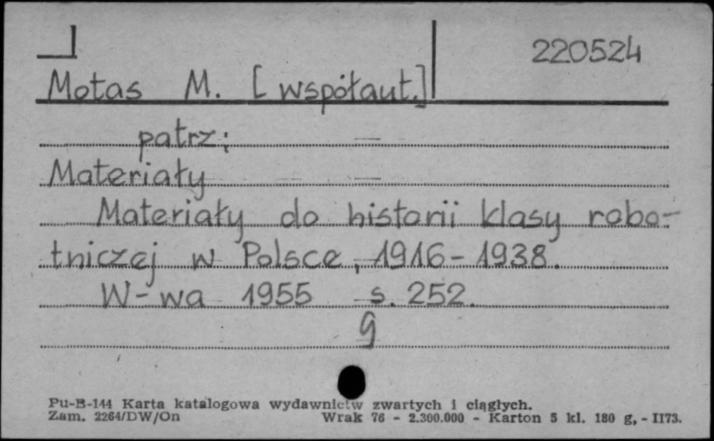 220524
Motas M. [współaut.]
patrz:
Materiały
Materiały do historii klasy robo-
tniczej w Polsce, 1916-1938.
W-wa 1955 s. 252.
g
Pu-B-144 Karta katalogowa wydawnictw zwartych i ciągłych.
Zam. 2264/DW/On Wrak 76 - 2.300.000 - Karton 5 kl. 180 g, - II73.